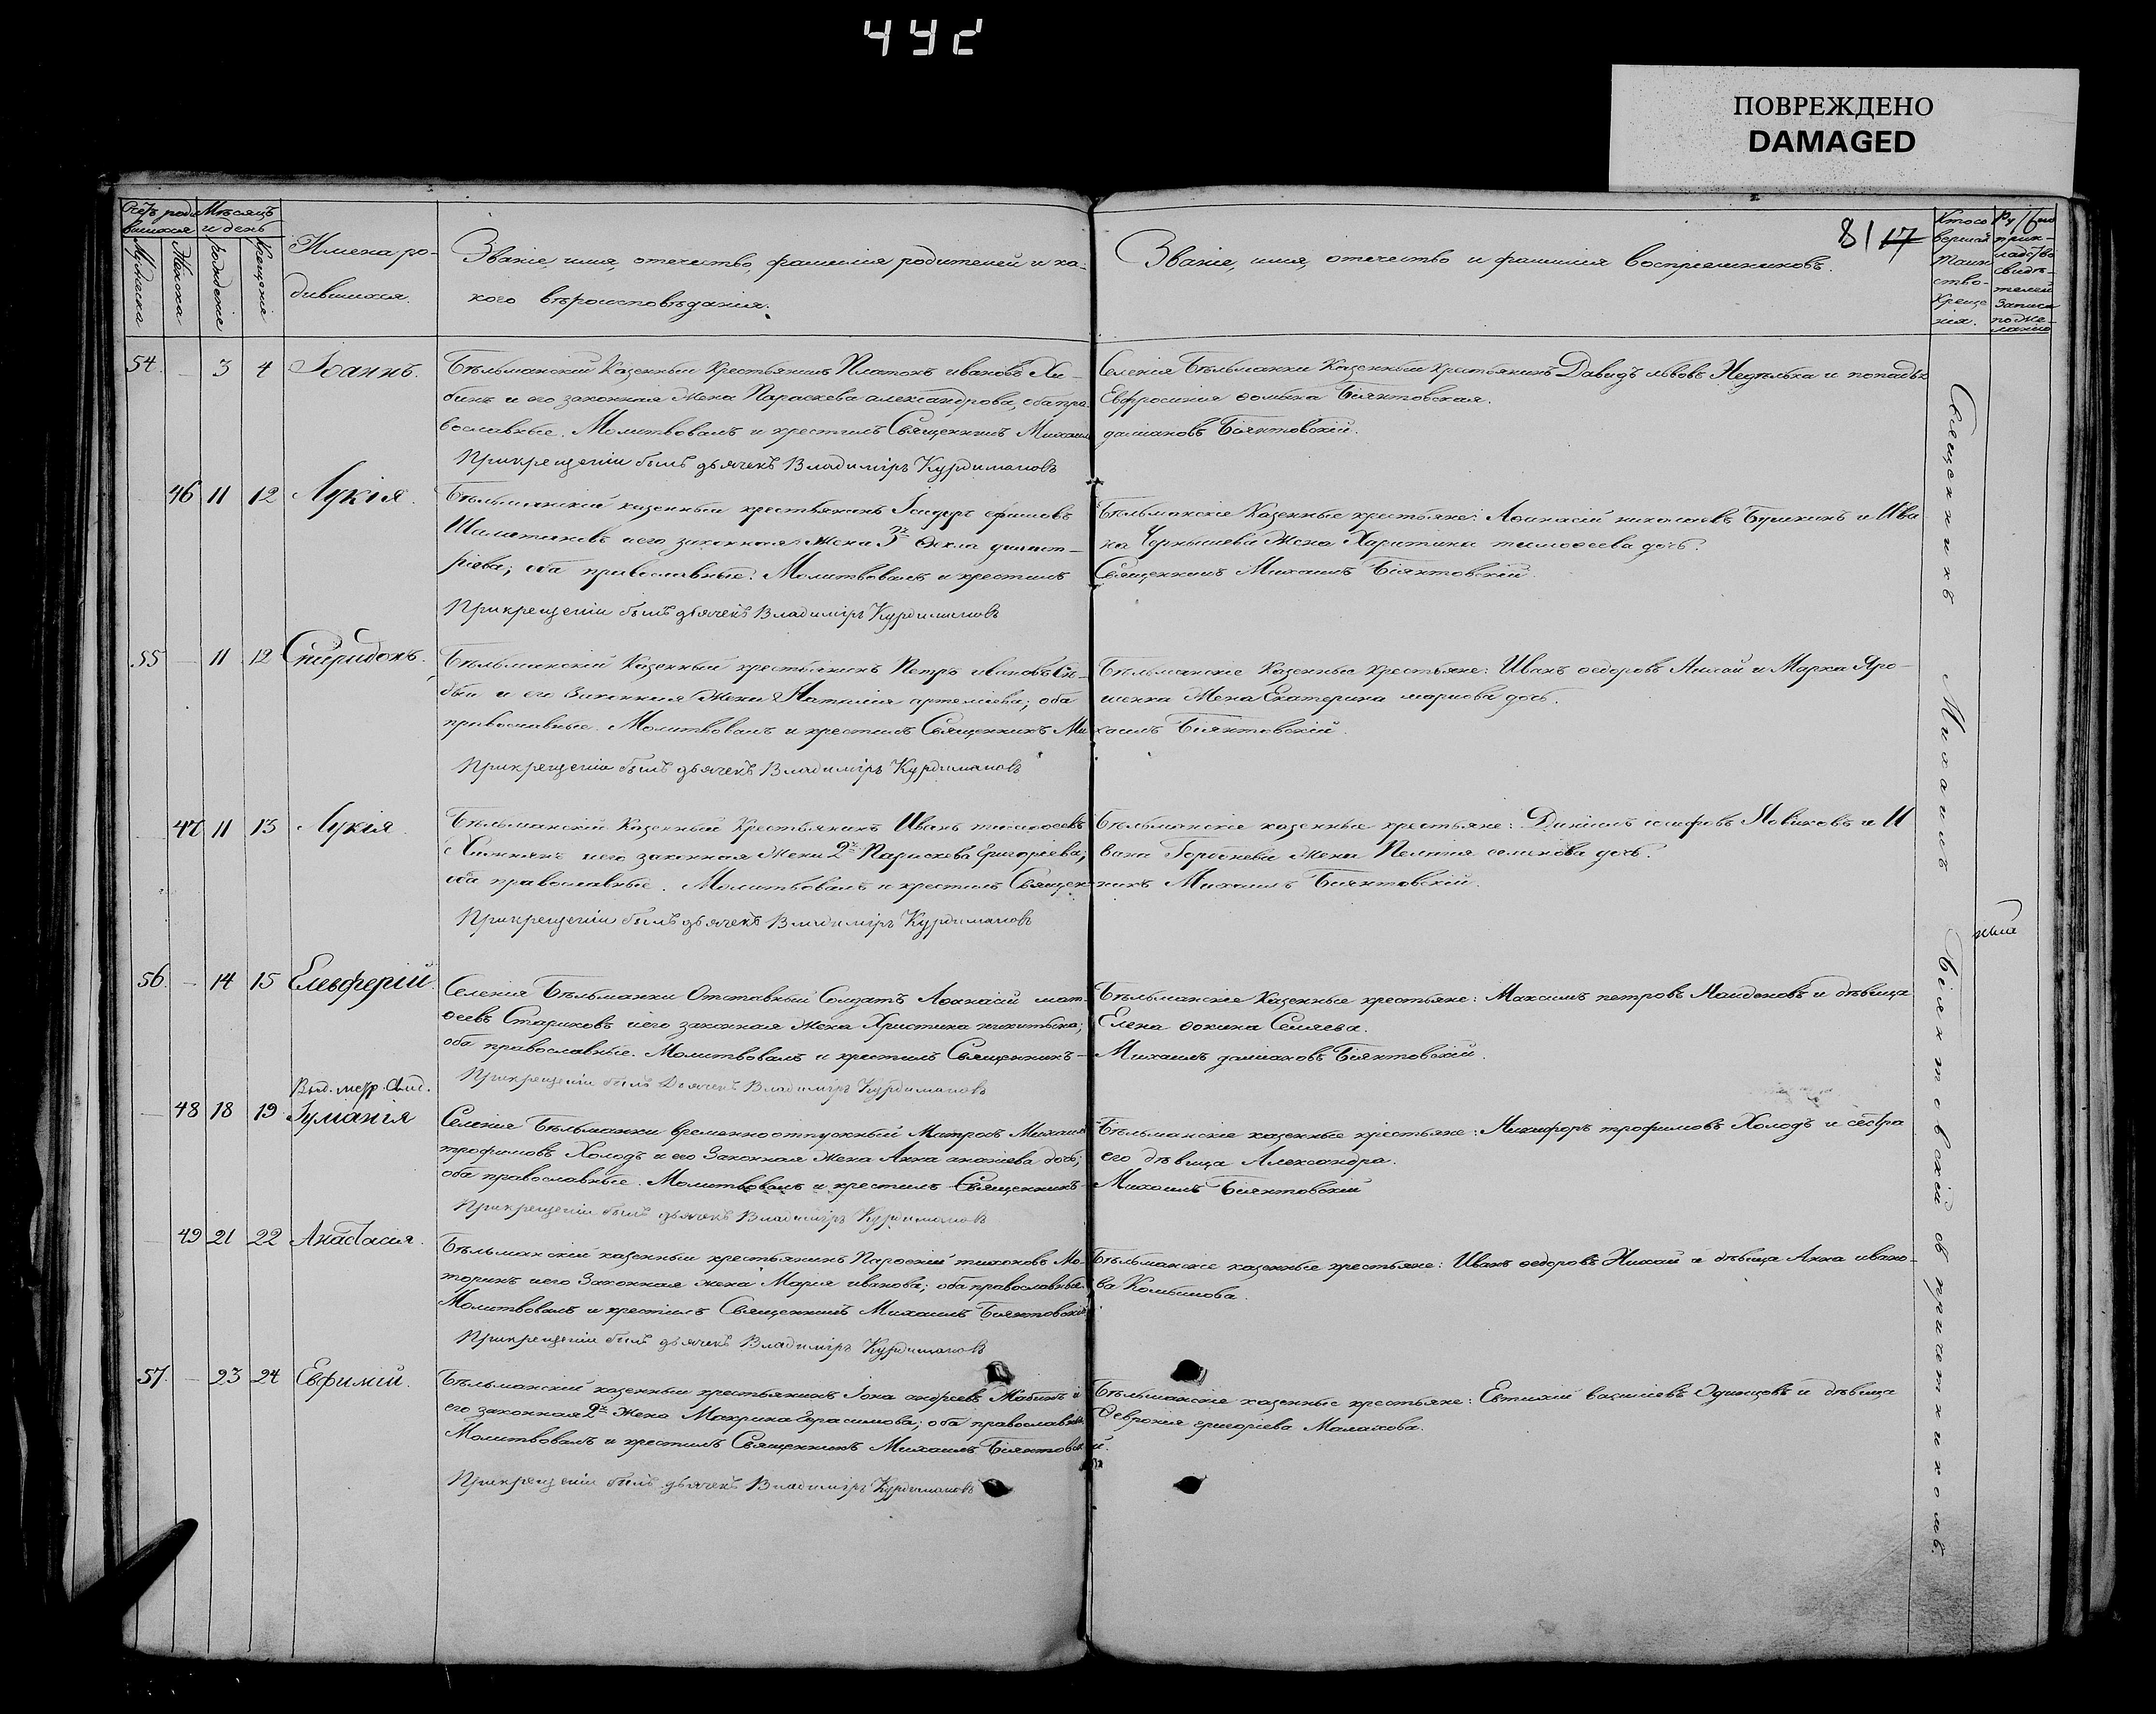 442
ПОВРЕЖДЕНО
DAMAGED
81 17
Мѣсяцъ и день
рожденіе
крещеніе
Имена ро-
дившихся.
Званіе, имя, отечество, фамилія родителей и ка-
кого вѣроисповѣданія.
Званіе, имя, отечество и фамилія воспріемниковъ.
Кто со
вершал
таин
ство
креще
нія.
54. - 3 4 Іоаннъ.
Бѣльманскій Казенный Крестьянинъ Платонъ ивановъ
и его законная Жена Параскева александрова, оба пра-
вославные. Молитвовалъ и крестилъ Священникъ Михаилъ
Прикрещеніи былъ дьячекъ Владиміръ Курдимановъ
Селенія Бѣльманки Казенный крестьянинъ Давидъ львовъ Недѣлька и попадья
Евфросинія Біянтовская.
даміановъ Біянтовскій.
- 46 11 12 Лукія.
Бѣльманскій казенный крестьянинъ Ісидоръ ефимовъ
иего законная Жена 3я Ѳекла димит-
ріева; оба православные. Молитвовалъ и крестилъ
Прикрещеніи былъ дьячекъ Владиміръ Курдимановъ
Бѣльманскіе Казенные крестьяне: Аѳанасій николаевъ Бушкинъ и Ива
на Чернышева Жена Харитина тимоѳеева дочь.
Священникъ Михаилъ Біянтовскій.
55 - 11 12 Спиридонъ.
Бѣльманскій Казенный крестьянинъ Петръ ивановъ
и его Законная Жена Наталія артеміева; оба
православные. Молитвовалъ и крестилъ Священникъ Ми
Прикрещеніи былъ дьячекъ Владиміръ Курдимановъ
Бѣльманскіе Казенные крестьяне: Иванъ ѳедоровъ и Марка Яро-
шенка Жена Екатерина дочь.
хаилъ Біянтовскій.
- 47 11 13 Лукія.
Бѣльманскій Казенный Крестьянинъ Иванъ тимоѳеевъ
иего законная Жена 2я Параскева Григоріева;
оба православные. Молитвовалъ и крестилъ Священ-
Прикрещеніи былъ дьячекъ Владиміръ Курдимановъ
Бѣльманскіе казенные крестьяне: Даніилъ іосифовъ Новиковъ и И
вана Горбенева Жена Пелагія семенова дочь.
никъ Михаилъ Біянтовскій.
56. - 14 15 Елевферій.
Селенія Бѣльманки Отставный Солдатъ Аѳанасій мат-
ѳеевъ Стариковъ иего законная Жена Христина никитина;
оба православные. Молитвовалъ и крестилъ Священникъ-
Прикрещеніи былъ Дьячекъ Владиміръ Курдимановъ
Бѣльманскіе Казенные крестьяне: Максимъ петровъ Найденовъ и дѣвица
Елена ѳокина Семяева.
Михаилъ даміановъ Біянтовскій.
Выд. метр. Свид.
- 48 18 19 Іуліанія
Селенія Бѣльманки временноотпускный Матросъ Михаилъ
трофимовъ Холодъ и его Законная Жена Анна ананіева дочь;
оба православные. Молитвовалъ и крестилъ Священникъ-
Прикрещеніи былъ дьячекъ Владиміръ Курдимановъ
Бѣльманскіе казенные крестьяне: Никифоръ трофимовъ Холодъ и сестра
его дѣвица Александра.
Михаилъ Біянтовскій
- 49 21 22 Анастасія.
Бѣльманскій казенный крестьянинъ Парѳеній тихоновъ Мо-
торинъ иего Законная жена Марія иванова; оба православные.
Молитвовалъ и крестилъ Священникъ Михаилъ Біянтовскій
Прикрещеніи былъ дьячекъ Владиміръ Курдимановъ
Бѣльманскіе казенные крестьяне: Иванъ ѳедоровъ и дѣвица Анна ивано-
ва
57. - 23 24 Евфимій.
Бѣльманскій казенный крестьянинъ Іона андреевъ Мабинъ и
его законная 2я Жена Макрина Герасимова; оба православные
Молитвовалъ и крестилъ Священникъ Михаилъ Біянтовскій.
Прикрещеніи былъ дьячекъ Владиміръ Курдимановъ
Бѣльманскіе казенные крестьяне: Евтихій василіевъ Одинцовъ и дѣвица
Ѳевронія григоріева Малахова.
Священникъ Михаилъ Біянтовскій съ причетникомъ.